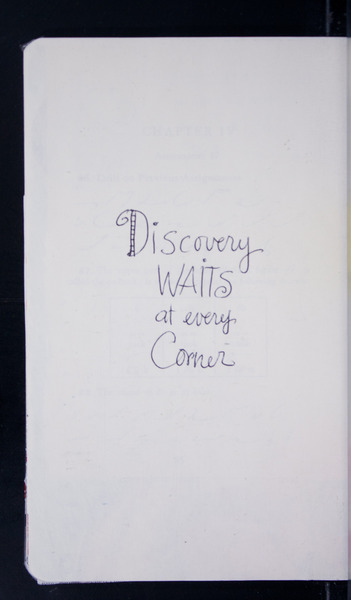 Discovery
WAITS
at every
Corner